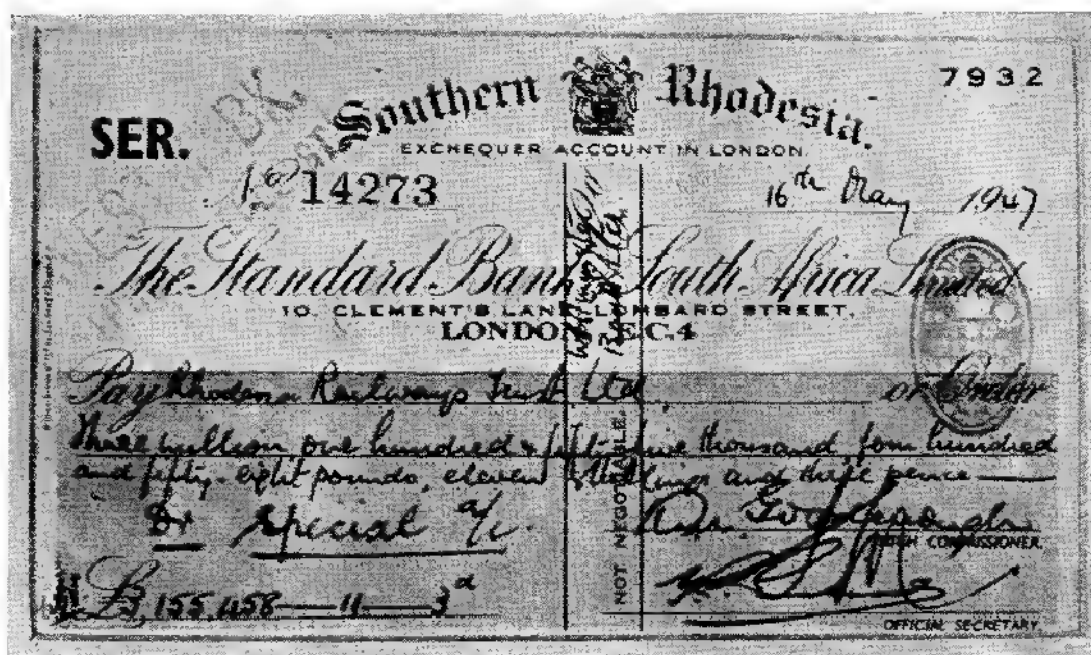 7932
Southern Rhodesia.
SER.
EXCHEQUER ACCOUNT IN LONDON
No 14273
16th May 1947
The Standard Bank South Africa Limited
10. CLEMENT'S LANE, LOMBARD STREET,
LONDON E.C.4
Pay Rhodesia Railways Trust Ltd or Order
Three million one hundred & fifty-five thousand, four hundred
and fifty-eight pounds, eleven shillings and three pence
Dr Special a/c
HIGH COMMISSIONER.
£3,155,458—11—3d
OFFICIAL SECRETARY
NOT NEGOTIABLE